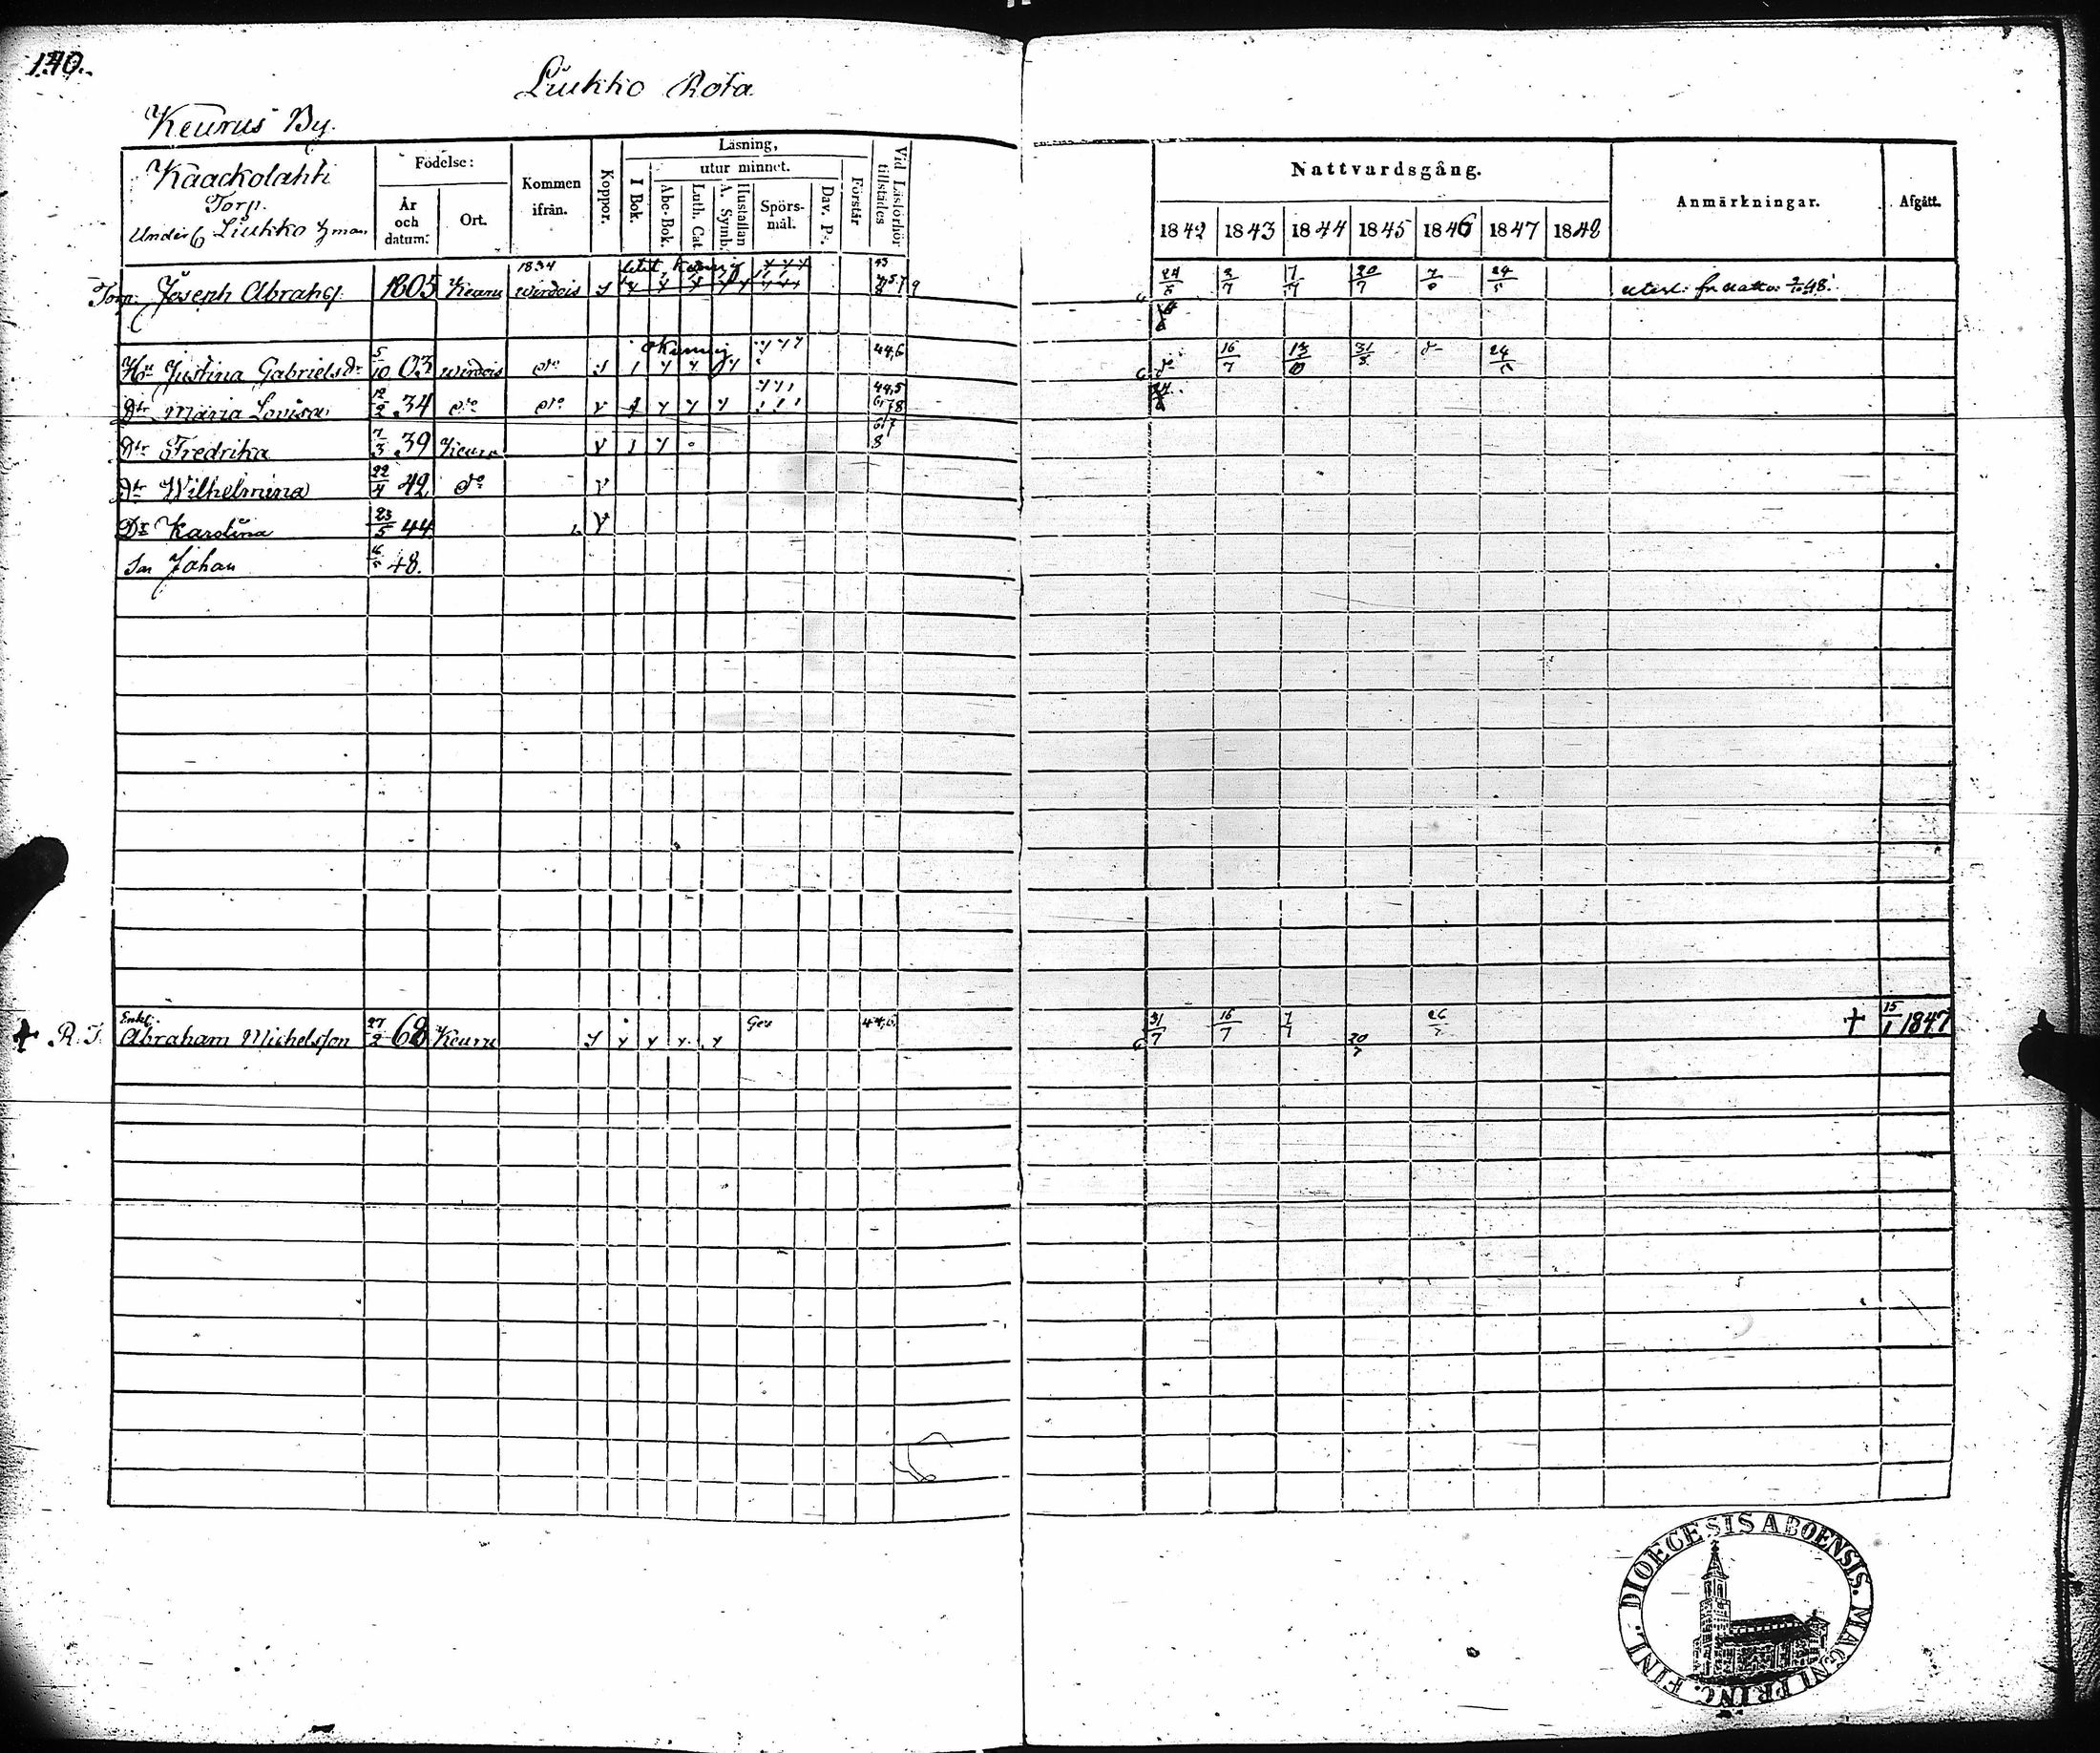 140.
Liukko Rota
Keurus By.
Kaackolahti
Torp.
Under Liukko Hman
Födelse:
År och datum:
Ort.
Kommen ifrån.
Koppor.
Läsning,
utur minnet.
I Bok.
Abc-Bok.
Luth. Cat.
A. Symb.
Hustaflan
Spörs-mål.
Dav. Ps.
Förstår
Vid Läsförhör tillstädes
Nattvardsgång.
1842 1843 1844 1845 1846 1847 1848
Anmärkningar.
Afgått.
1834
Torp. Joseph Abrahs. 1805 Keuru Wirdois
24/5 2/7 7/7 20/7 24/5
Hu Justina Gabrielsdr 5/10 03 Wirdois do 44,6
16/7 31/8 24/5
Dtr Maria Lovisa 12/2 34 do do 44,5
Dtr Fredrika 7/3 39 Keuru
Dtr Wilhelmina 22/4 42 do
Dr Karolina 23/5 44
Son Johan 48.
+ R. I. Enkl. Abraham Michelsson 27/2 68 Keuru
31/7 16/7 7/7 20/7 26/7 + 15/1 1847
FINL. DIOECESIS ABOENSIS. MAGNI PRINC.